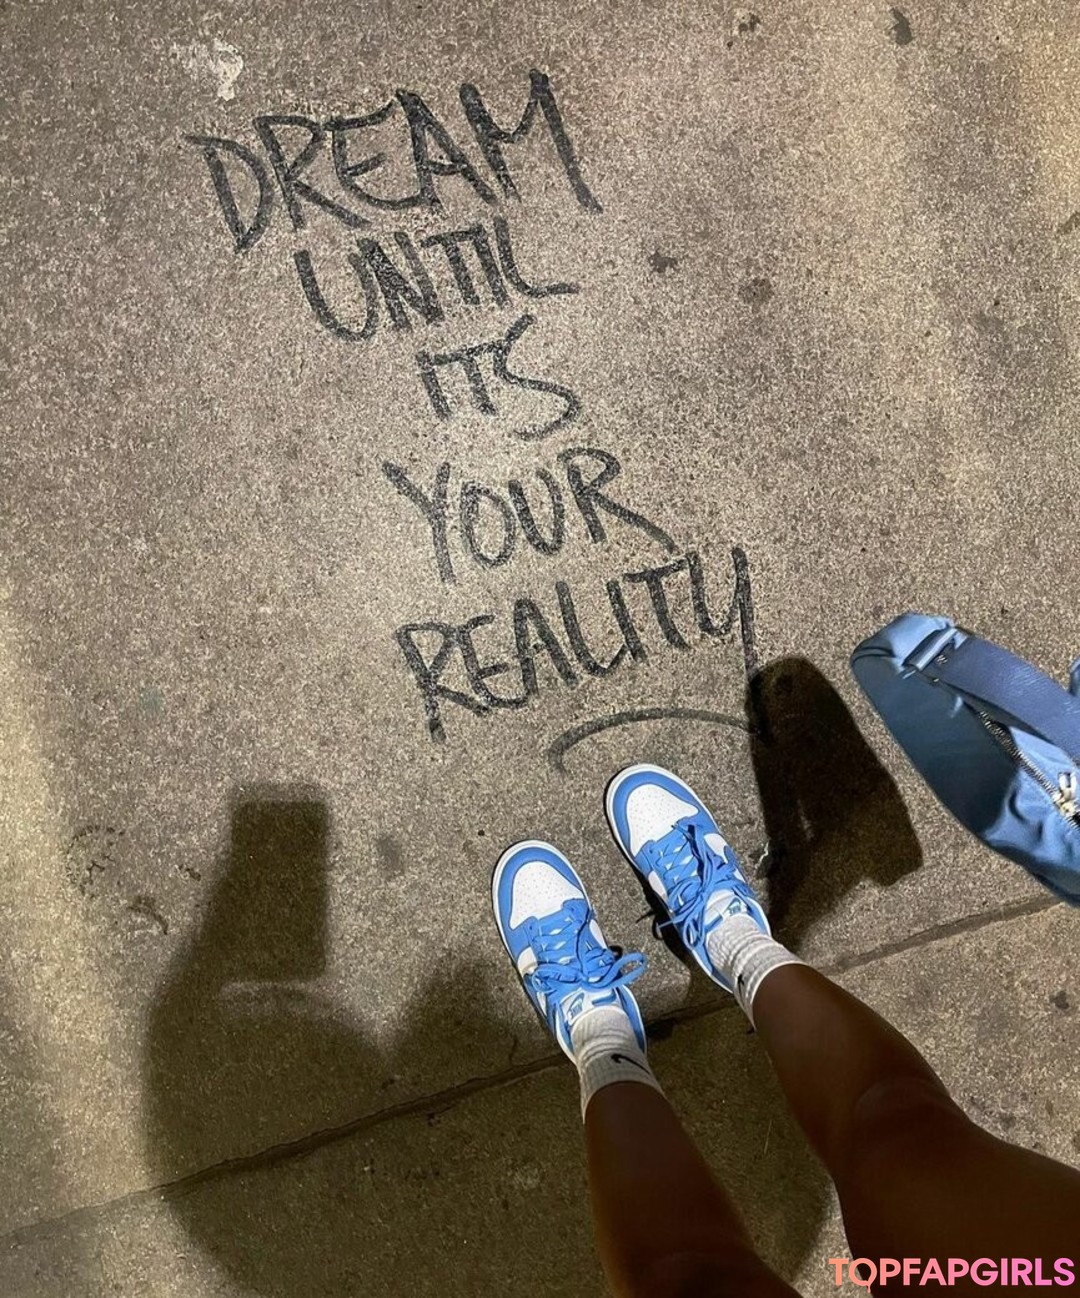 DREAM
UNTIL
ITS
YOUR
REALITY
TOPFAPGIRLS